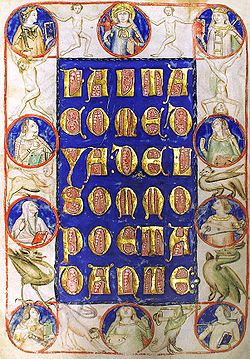 LALMA
COMED
YADEL
SOMMO
POETA
DANTE